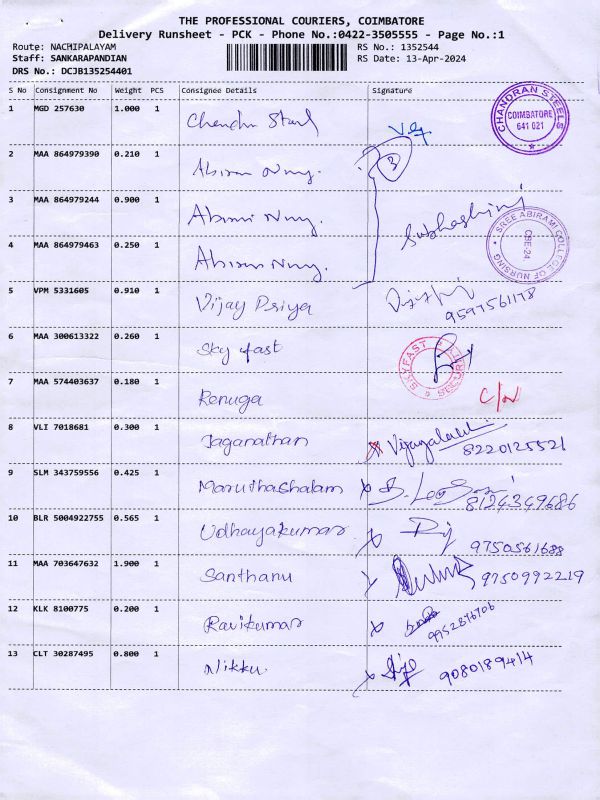 THE PROFESSIONAL COURIERS, COIMBATORE
Delivery Runsheet - PCK - Phone No.:0422-3505555 - Page No.:1
Route: NACHIPALAYAM RS No.: 1352544
Staff: SANKARAPANDIAN RS Date: 13-Apr-2024
DRS No.: DCJB135254401
S No Consignment No Weight PCS Consignee Details Signature
1 MGD 257630 1.000 1 CHANDRAN STEELS COIMBATORE 641 021
2 MAA 864979390 0.210 1 3
3 MAA 864979244 0.900 1 Subhashini
4 MAA 864979463 0.250 1 SREE ABIRAMI COLLEGE OF NURSING CBE-24.
5 VPM 5331605 0.910 1 Vijay Priya 9597561178
6 MAA 300613322 0.260 1 Sky fast SKYFAST
7 MAA 574403637 0.180 1 Renuga
8 VLI 7018681 0.300 1 Jaganathan 8220125521
9 SLM 343759556 0.425 1 Maruthashalam 8124349686
10 BLR 5004922755 0.565 1 Udhayakumar 9750561688
11 MAA 703647632 1.900 1 Santhanu 9750992219
12 KLK 8100775 0.200 1 Ravikumar
13 CLT 30287495 0.800 1 Nikku. 9080189414